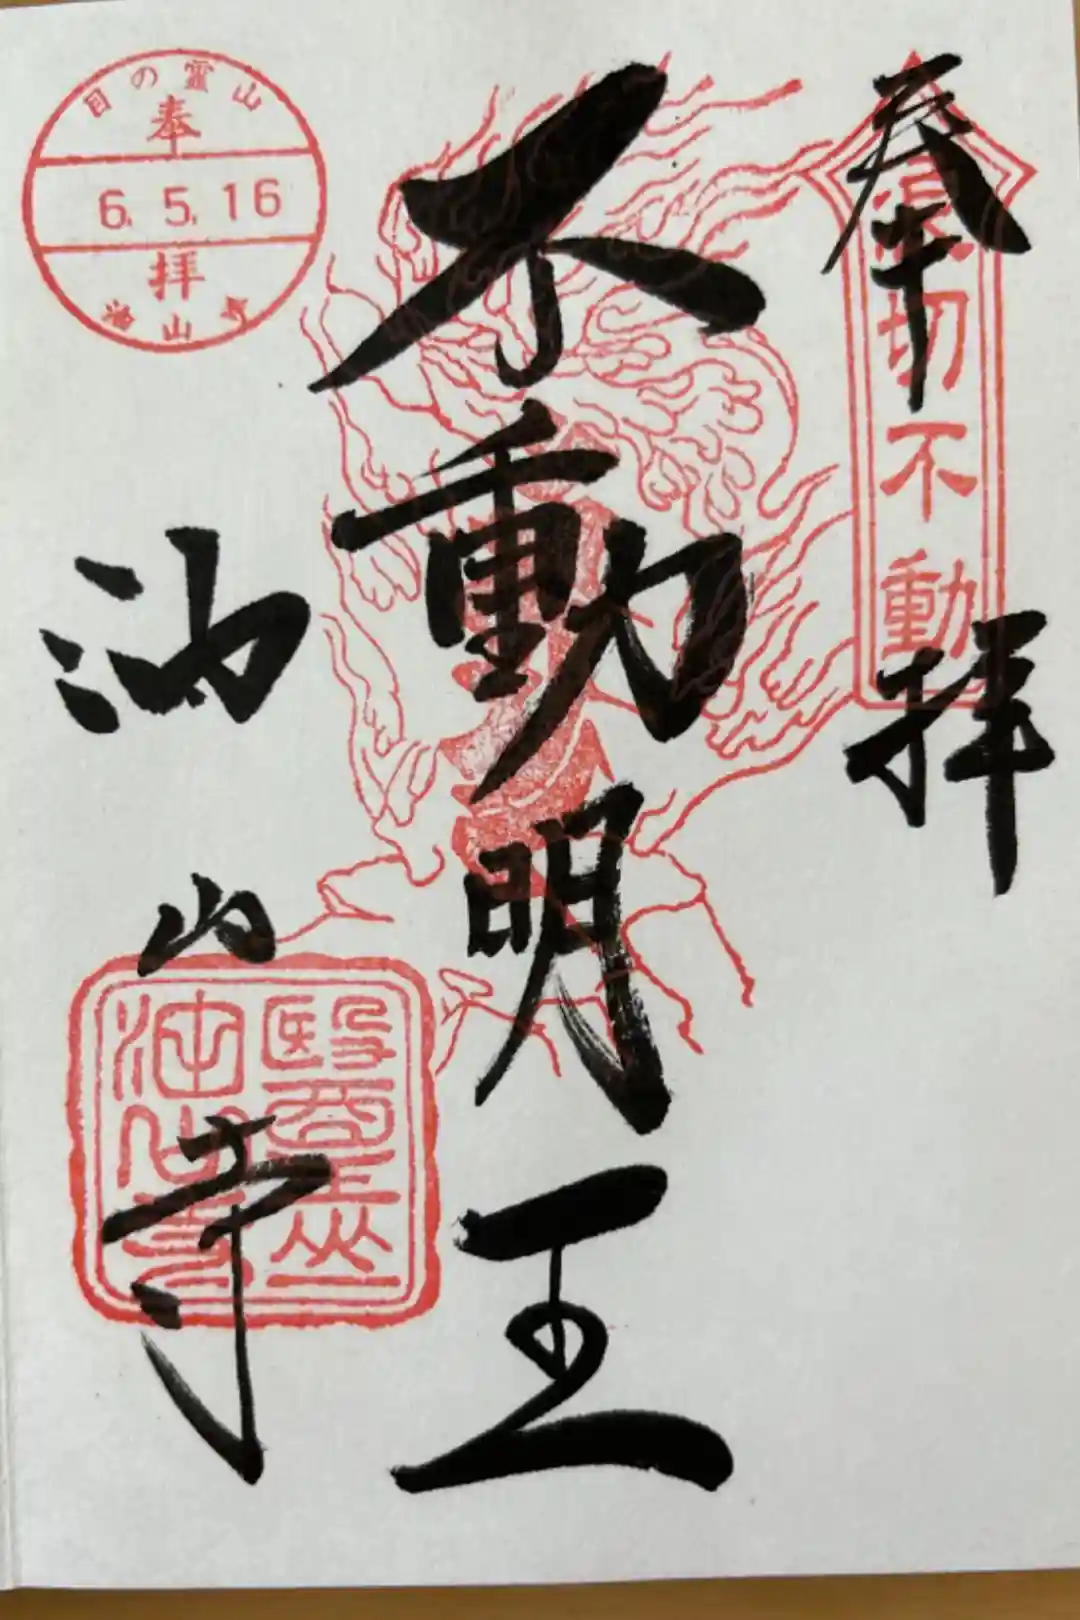 奉拝
切不動
不動明王
油山寺
醫王山
油山寺
目の靈山
奉
6.5.16
拝
油山寺